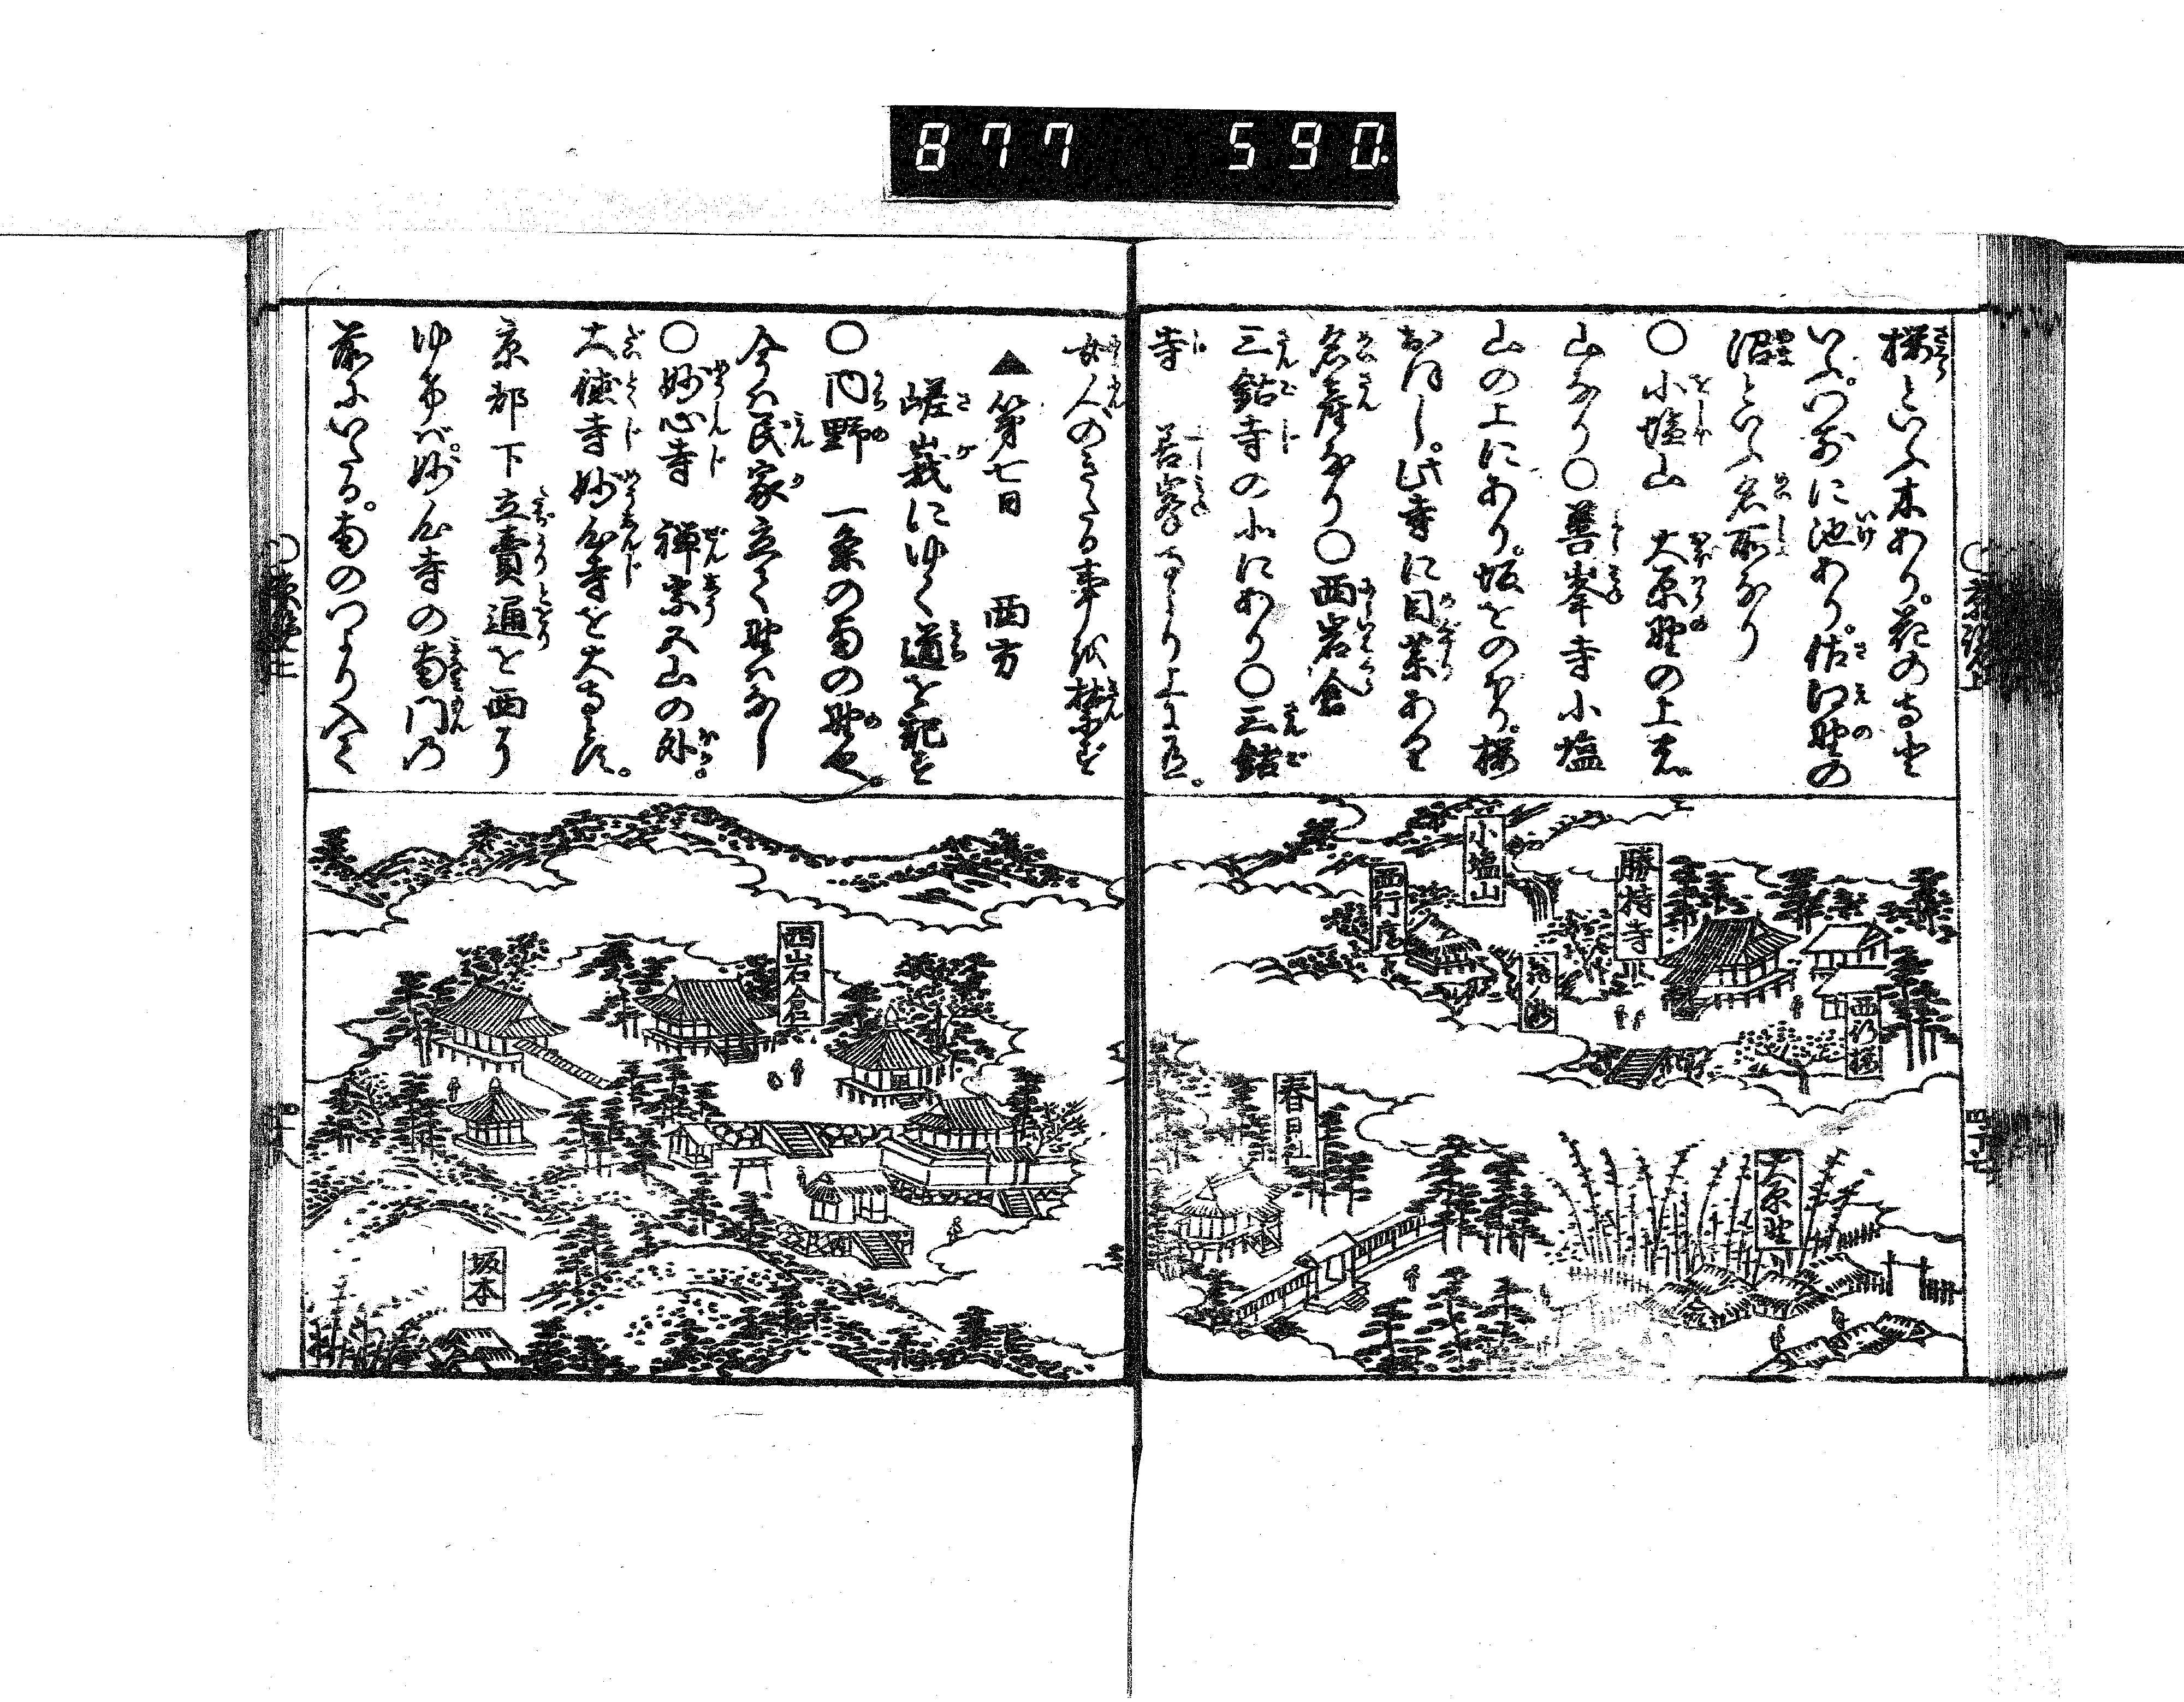 877 590
桜といふ木あり。花の寺と
いふ。門前に池あり。佐江野の
沼といふ名所なり
○小塩山 大原野の上の
山なり○善峯寺 小塩
山の上にあり。坂をのぼり。桜
おほし。此寺に目薬あり
名産なり○西岩倉
三鈷寺の北にあり○三鈷
寺 善峯寺より上に有。
女人のきたる事を禁ず
▲第七日 西方
嵯峨にゆく道を記す
○内野 一条の南の野也。
今は民家立て野はなし
○妙心寺 禅宗五山の外。
大徳寺妙心寺を大寺とす。
京都下立売通を西へ
ゆけば。妙心寺の南門の
前にいたる。南の門より入て
勝持寺
小塩山
西行庵
西行桜
春日社
大原野
西岩倉
坂本